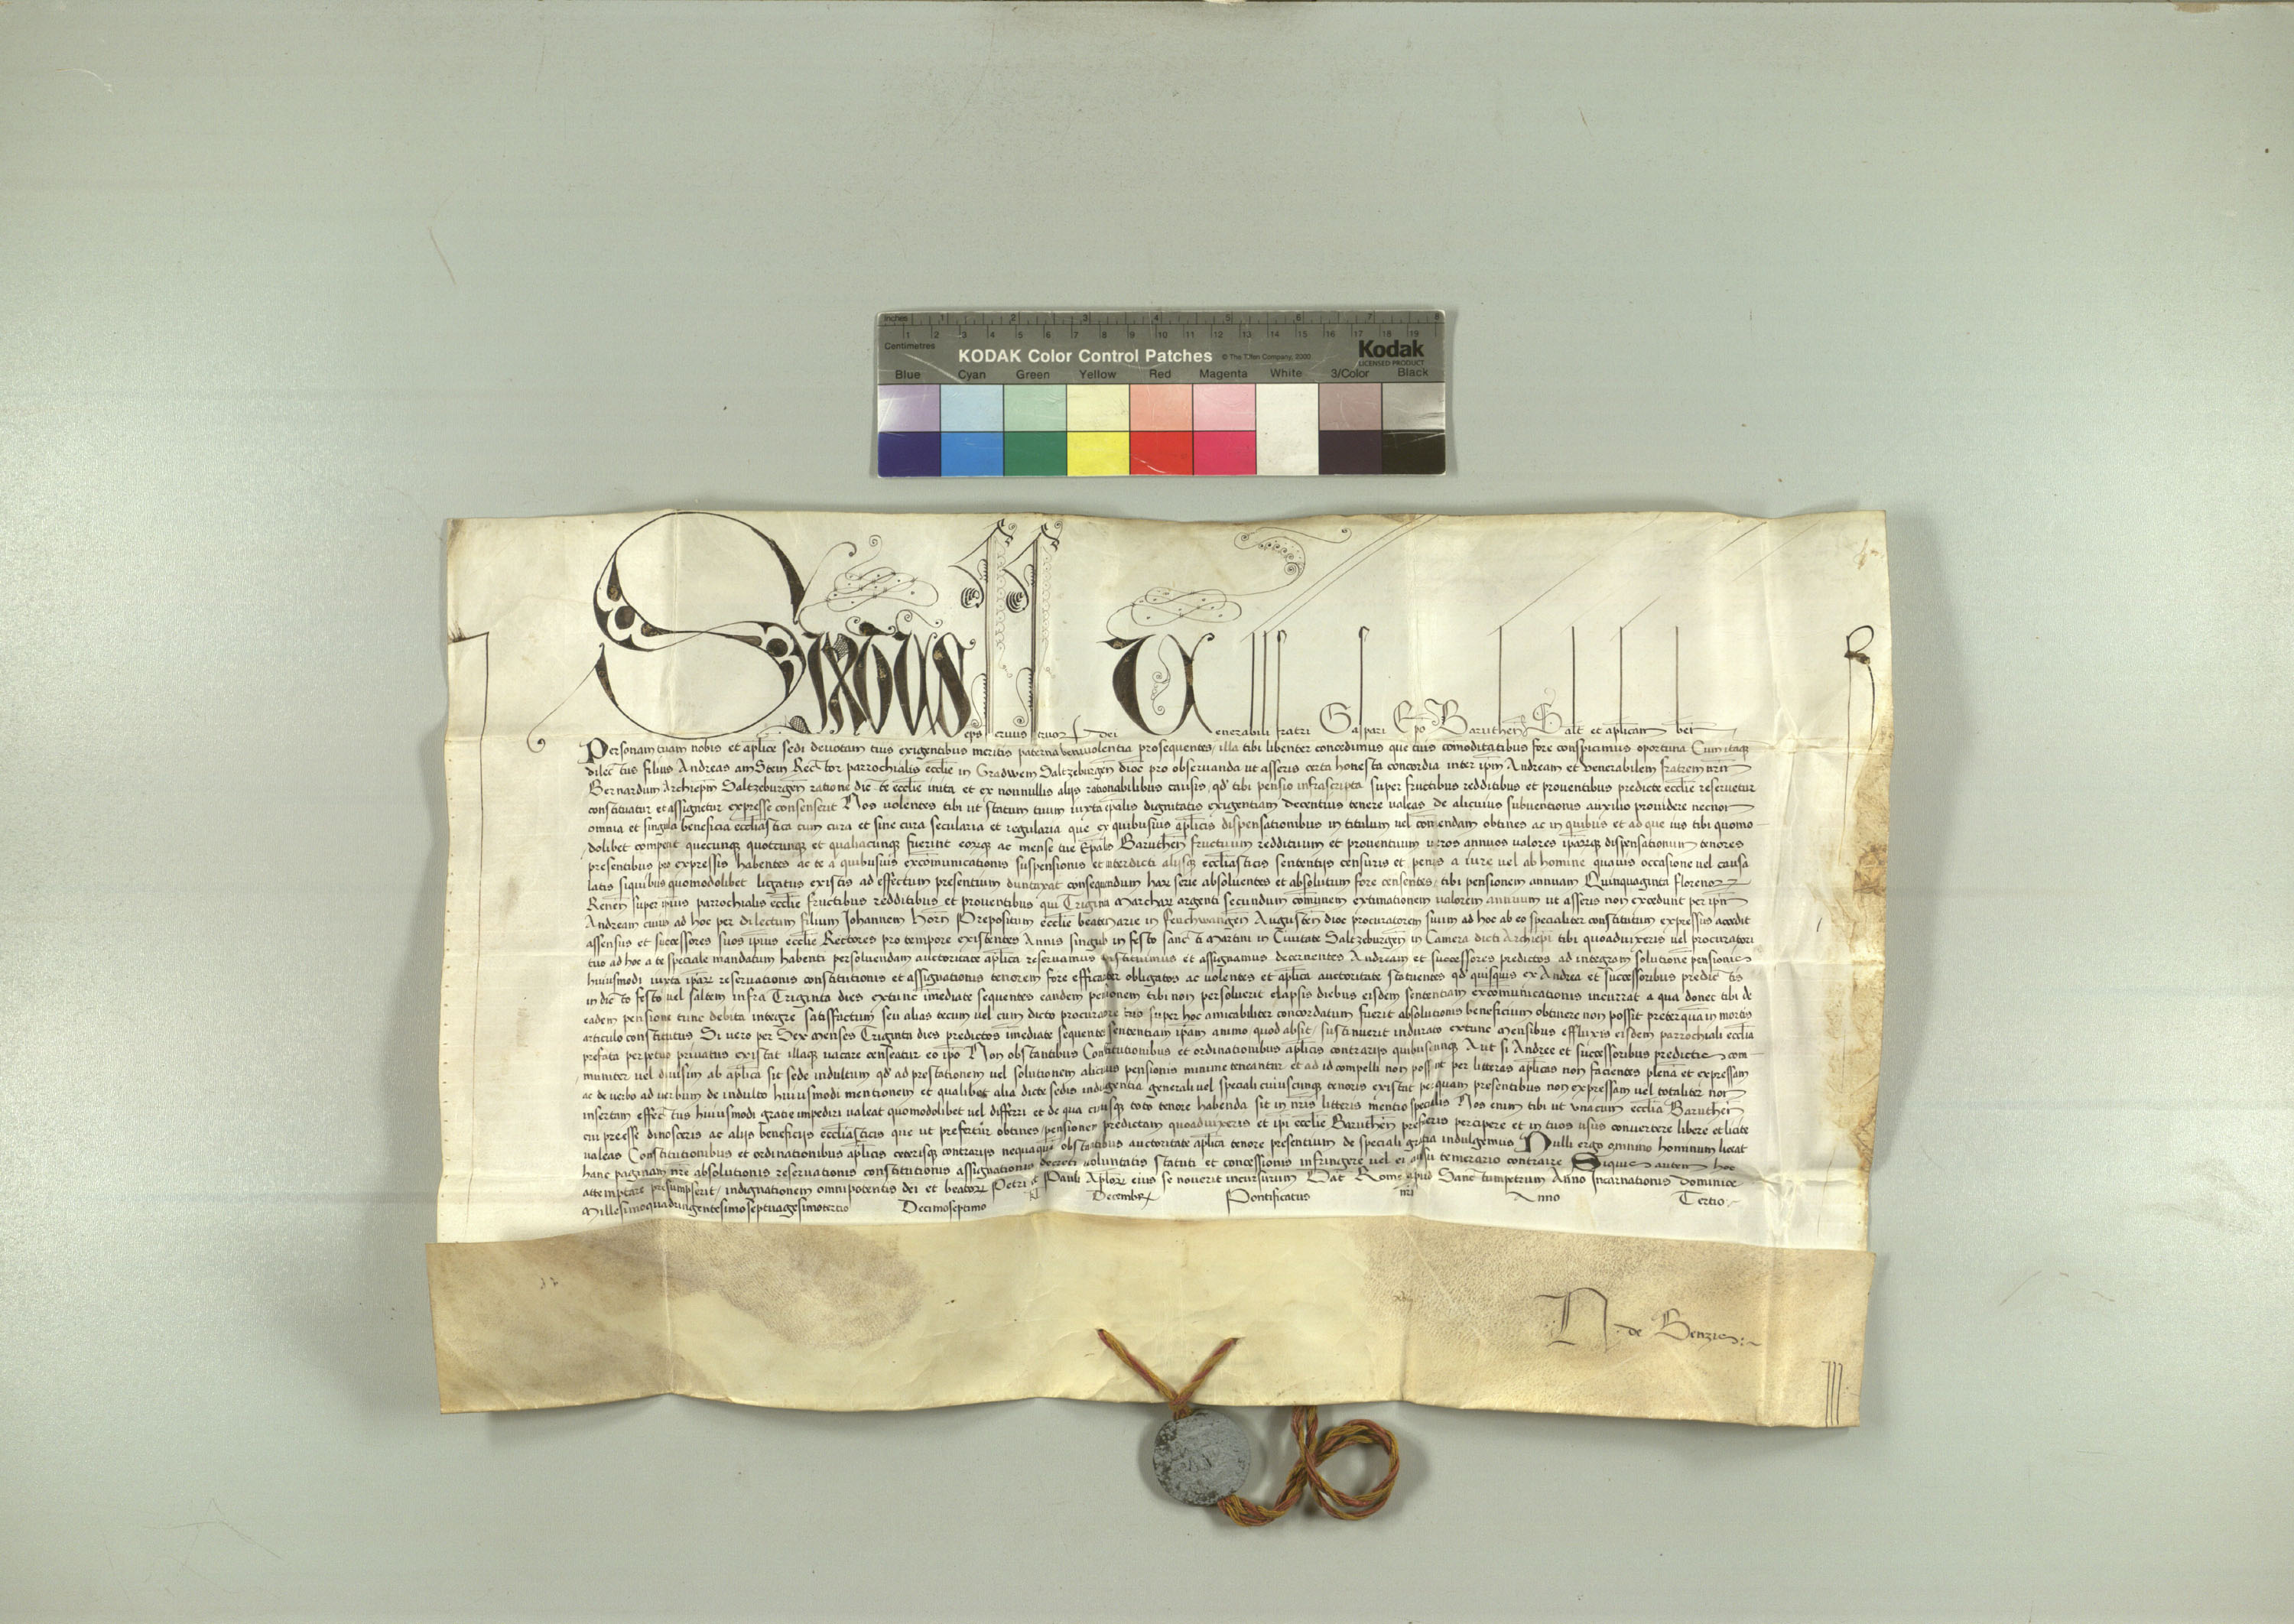 Inches 1 2 3 4 5 6 7 8
1 2 3 4 5 6 7 8 9 10 11 12 13 14 15 16 17 18 19
Centimetres
KODAK Color Control Patches © The Tiffen Company, 2000 Kodak
LICENSED PRODUCT
Blue Cyan Green Yellow Red Magenta White 3/Color Black
Sixtus eps seruus seruor dei Venerabili fratri Gaspari Epo Baruthen Salt et aplicam ben
Personam tuam nobis et aplice sedi deuotam tuis exigentibus meritis paterna beniuolentia prosequentes, illa tibi libenter concedimus que tuis comoditatibus fore conspicimus oportuna Cum itaq
dilectus filius Andreas am Stein Rector parrochialis ecclie in Gradwem Saltzeburgen dioc pro obseruanda ut asseris certa honesta concordia inter ipm Andream et venerabilem fratrem nrm
Bernardum Archiepm Saltzeburgen ratione dicte ecclie inita et ex nonnullis alijs rationabilibus causis, qd tibi pensio infrascripta super fructibus redditibus et prouentibus predicte ecclie reseruetur
constituatur et assignetur expresse consenserit Nos volentes tibi ut statum tuum iuxta epalis dignitatis exigentiam decentius tenere valeas de alicuius subuentionis auxilio prouidere necnon
omnia et singula beneficia ecclastica cum cura et sine cura secularia et regularia que ex quibusuis aplicis dispensationibus in titulum uel comendam obtines ac in quibus et ad que ius tibi quomo-
dolibet competit quecunq quotcunq et qualiacunq fuerint eorq ac mense tue Epalis Baruthen fructuum reddituum et prouentuum ueros annuos valores ipararq dispensationum tenores
presentibus pro expressis habentes ac te a quibusuis excomunicationis suspensionis et interdicti alijsq ecclasticis sententijs censuris et penis a iure uel ab homine quauis occasione uel causa
latis siquibus quomodolibet ligatus existis ad effectum presentium duntaxat consequendum har serie absoluentes et absolutum fore censentes, tibi pensionem annuam Quinquaginta florenor
Renen super ipius parrochialis ecclie fructibus redditibus et prouentibus qui Triginta Marchar argenti secundum comunem extimationem valorem annuum ut asseris non excedunt per ipm
Andream cuius ad hoc per dilectum filium Johannem Horn Prepositum ecclie beatemarie in feuchwangen Augusten dioc procuratorem suum ad hoc ab eo specialiter constitutum expressus accedit
assensus et successores suos ipius ecclie Rectores pro tempore existentes Annis singulis in festo sancti Martini in Ciuitate Saltzeburgen in Camera dicti Archiepi tibi quoaduixeris uel procuratori
tuo ad hoc a te speciale mandatum habenti persoluendam auctoritate aplica reseruamus constituimus et assignamus decernentes Andream et successores predictos ad integram solutione pensionis
huiusmodi iuxta ipar reseruationis constitutionis et assignationis tenorem fore efficaciter obligatos ac volentes et aplica auctoritate statuentes qd quisquis ex Andrea et successoribus predictis
in dicto festo uel saltem infra Triginta dies extunc imediate sequentes eandem pensionem tibi non persoluerit elapsis diebus eisdem sententiam excomunicationis incurrat a qua donec tibi de
eadem pensione tunc debita integre satisfactum seu alias tecum uel cum dicto procuratore tuo super hoc amicabiliter concordatum fuerit absolutionis beneficium obtinere non possit preterqua in mortis
articulo constitutus Si vero per Sex menses Triginta dies predictos imediate sequentes sententiam ipam animo, quod absit, sustinuerit indurato extunc mensibus effluxis eisdem parrochiali ecclia
prefata perpetuo priuatus existat illaq uacare censeatur eo ipo Non obstantibus Constitutionibus et ordinationibus aplicis contrarijs quibuscunq Aut si Andree et successoribus predictis com-
muniter uel diuisim ab aplica sit sede indultum qd ad prestationem uel solutionem alicuius pensionis minime teneantur et ad id compelli non possint per litteras aplicas non facientes plena et expressam
ac de verbo ad verbum de indulto huiusmodi mentionem et qualibet alia dicte sedis indulgentia generali uel speciali cuiuscunq tenoris existat per quam presentibus non expressam uel totaliter non
insertam effectus huiusmodi gratie impediri ualeat quomodolibet uel differri et de qua cuiusq toto tenore habenda sit in nris litteris mentio specialis Nos enim tibi ut vnacum ecclia Baruthen
cui preesse dinosceris ac alijs beneficijs ecclasticis que ut prefertur obtines, pensionem predictam quoaduixeris et ipi ecclie Baruthen prefueris percipere et in tuos usus conuertere libere et licite
ualeas Constitutionibus et ordinationibus aplicis ceterisq contrarijs nequaqua obstantibus auctoritate aplica tenore presentium de speciali gratia indulgemus Nulli ergo omnino hominum liceat
hanc paginam nre absolutionis reseruationis constitutionis assignationis decreti voluntatis statuti et concessionis infringere uel ei ausu temerario contraire Siquis autem hoc
attemptare presumpserit, indignationem omnipotentis dei et beator Petri et Pauli Aplor eius se nouerit incursurum Dat Rome apud Sanctumpetrum Anno Incarnationis dominice
Millesimoquadringentesimoseptuagesimotertio Decimoseptimo kl Decembr Pontificatus nri Anno Tertio
N. de Benzis